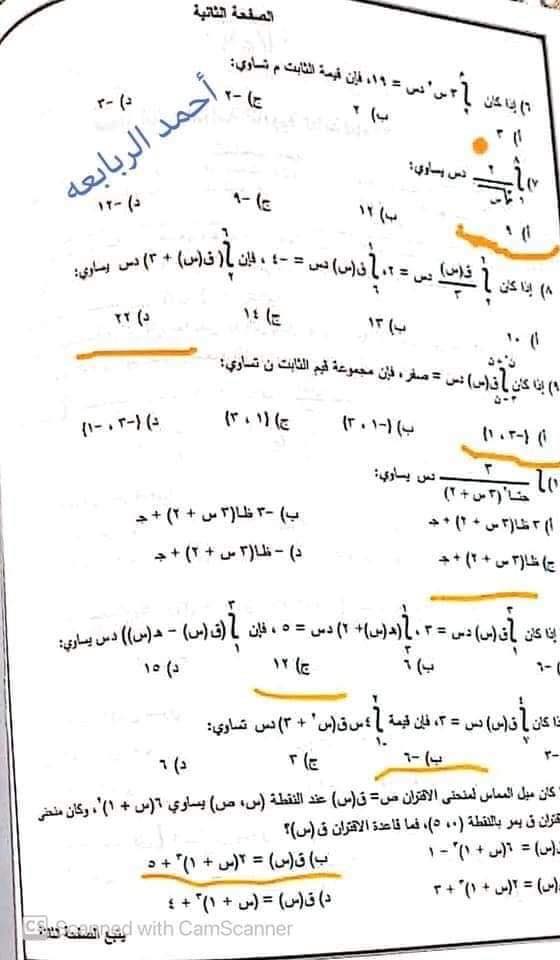 الصفحة الثانية
٦) إذا كان ∫ ٣ س٢ دس = ١٩، فإن قيمة الثابت م تساوي:
أ) ٣ ب) ٢ ج) -٢ د) -٣
أحمد الربابعه
٧) ∫ دس يساوي:
أ) ٩ ب) ١٢ ج) -٩ د) -١٢
٨) إذا كان ∫ ق(س)/٣ دس = ٢، ∫ ق(س) دس = -٤، فإن ∫ (ق(س) + ٣) دس يساوي:
أ) ١٠ ب) ١٣ ج) ١٤ د) ٢٢
٩) إذا كان ∫ ق(س) دس = صفر، فإن مجموعة قيم الثابت ن تساوي:
أ) {-٣، ١} ب) {-١، ٣} ج) {١، ٣} د) {-٣، -١}
∫ ٣/جتا٢(٣س + ٢) دس يساوي:
أ) ٣ ظا(٣س + ٢) + جـ ب) -٣ ظا(٣س + ٢) + جـ
ج) ظا(٣س + ٢) + جـ د) - ظا(٣س + ٢) + جـ
إذا كان ∫ ق(س) دس = ٣، ∫ (هـ(س) + ٢) دس = ٥، فإن ∫ (ق(س) - هـ(س)) دس يساوي:
-٦ ب) ٦ ج) ١٢ د) ١٥
ذا كان ∫ ق(س) دس = ٣، فإن قيمة ∫ ٤س ق(س٢ + ٣) دس تساوي:
-٣ ب) -٦ ج) ٣ د) ٦
كان ميل المماس لمنحنى الاقتران ص = ق(س) عند النقطة (س، ص) يساوي ٦(س + ١)٢، وكان منحنى
قتران ق يمر بالنقطة (٠، ٥)، فما قاعدة الاقتران ق(س)؟
(س) = ٦(س + ١)٣ - ١ ب) ق(س) = ٢(س + ١)٣ + ٥
(س) = ٢(س + ١)٣ + ٣ د) ق(س) = (س + ١)٣ + ٤
CS Scanned with CamScanner
يتبع الصفحة